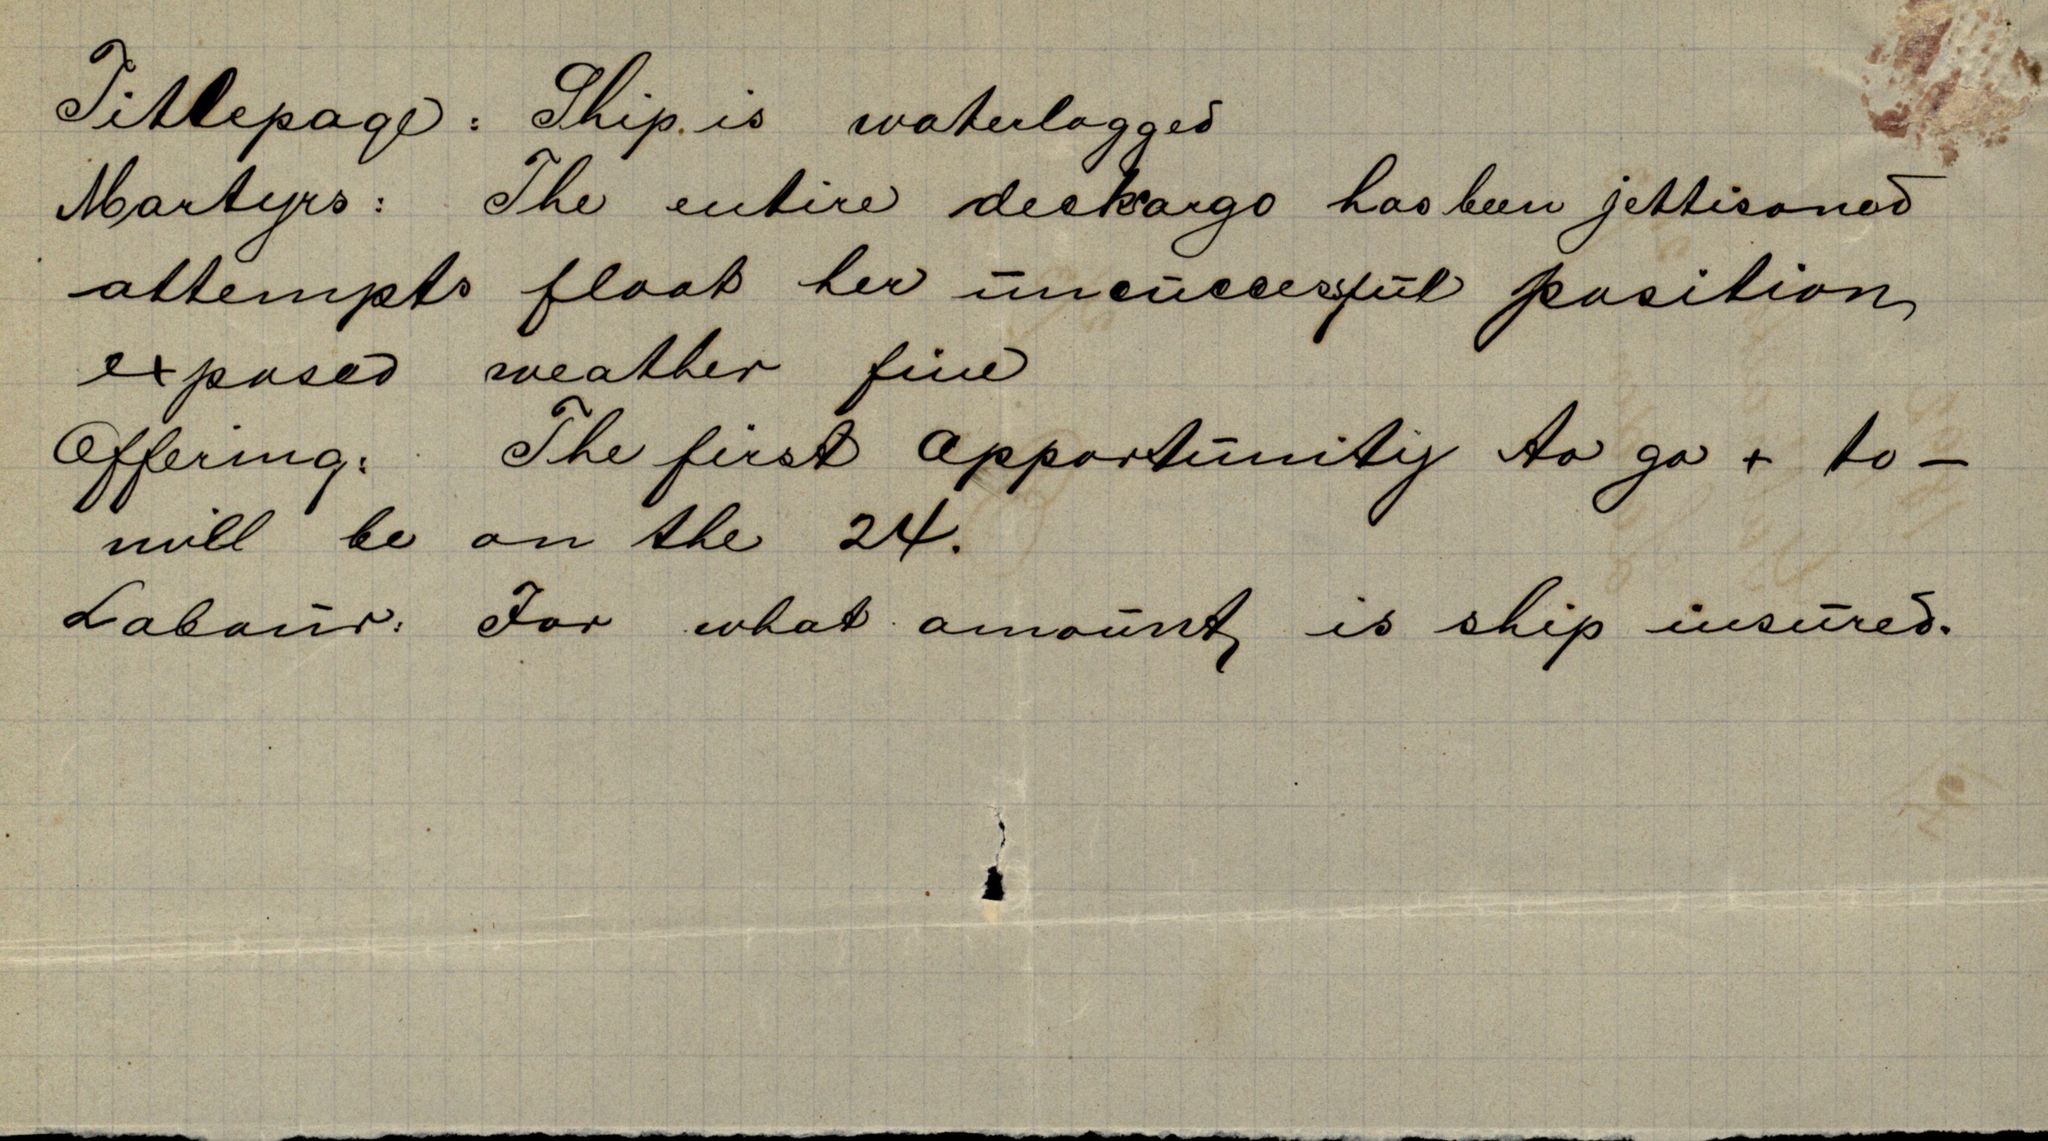 Titlepage: Ship is waterlogged
Martyrs: The entire deckcargo has been jettisoned
attempts float her uncuccessful position
exposed weather fine
Offering: The first opportunity to go + to —
will be on the 24.
Labour: For what amount is ship insured.